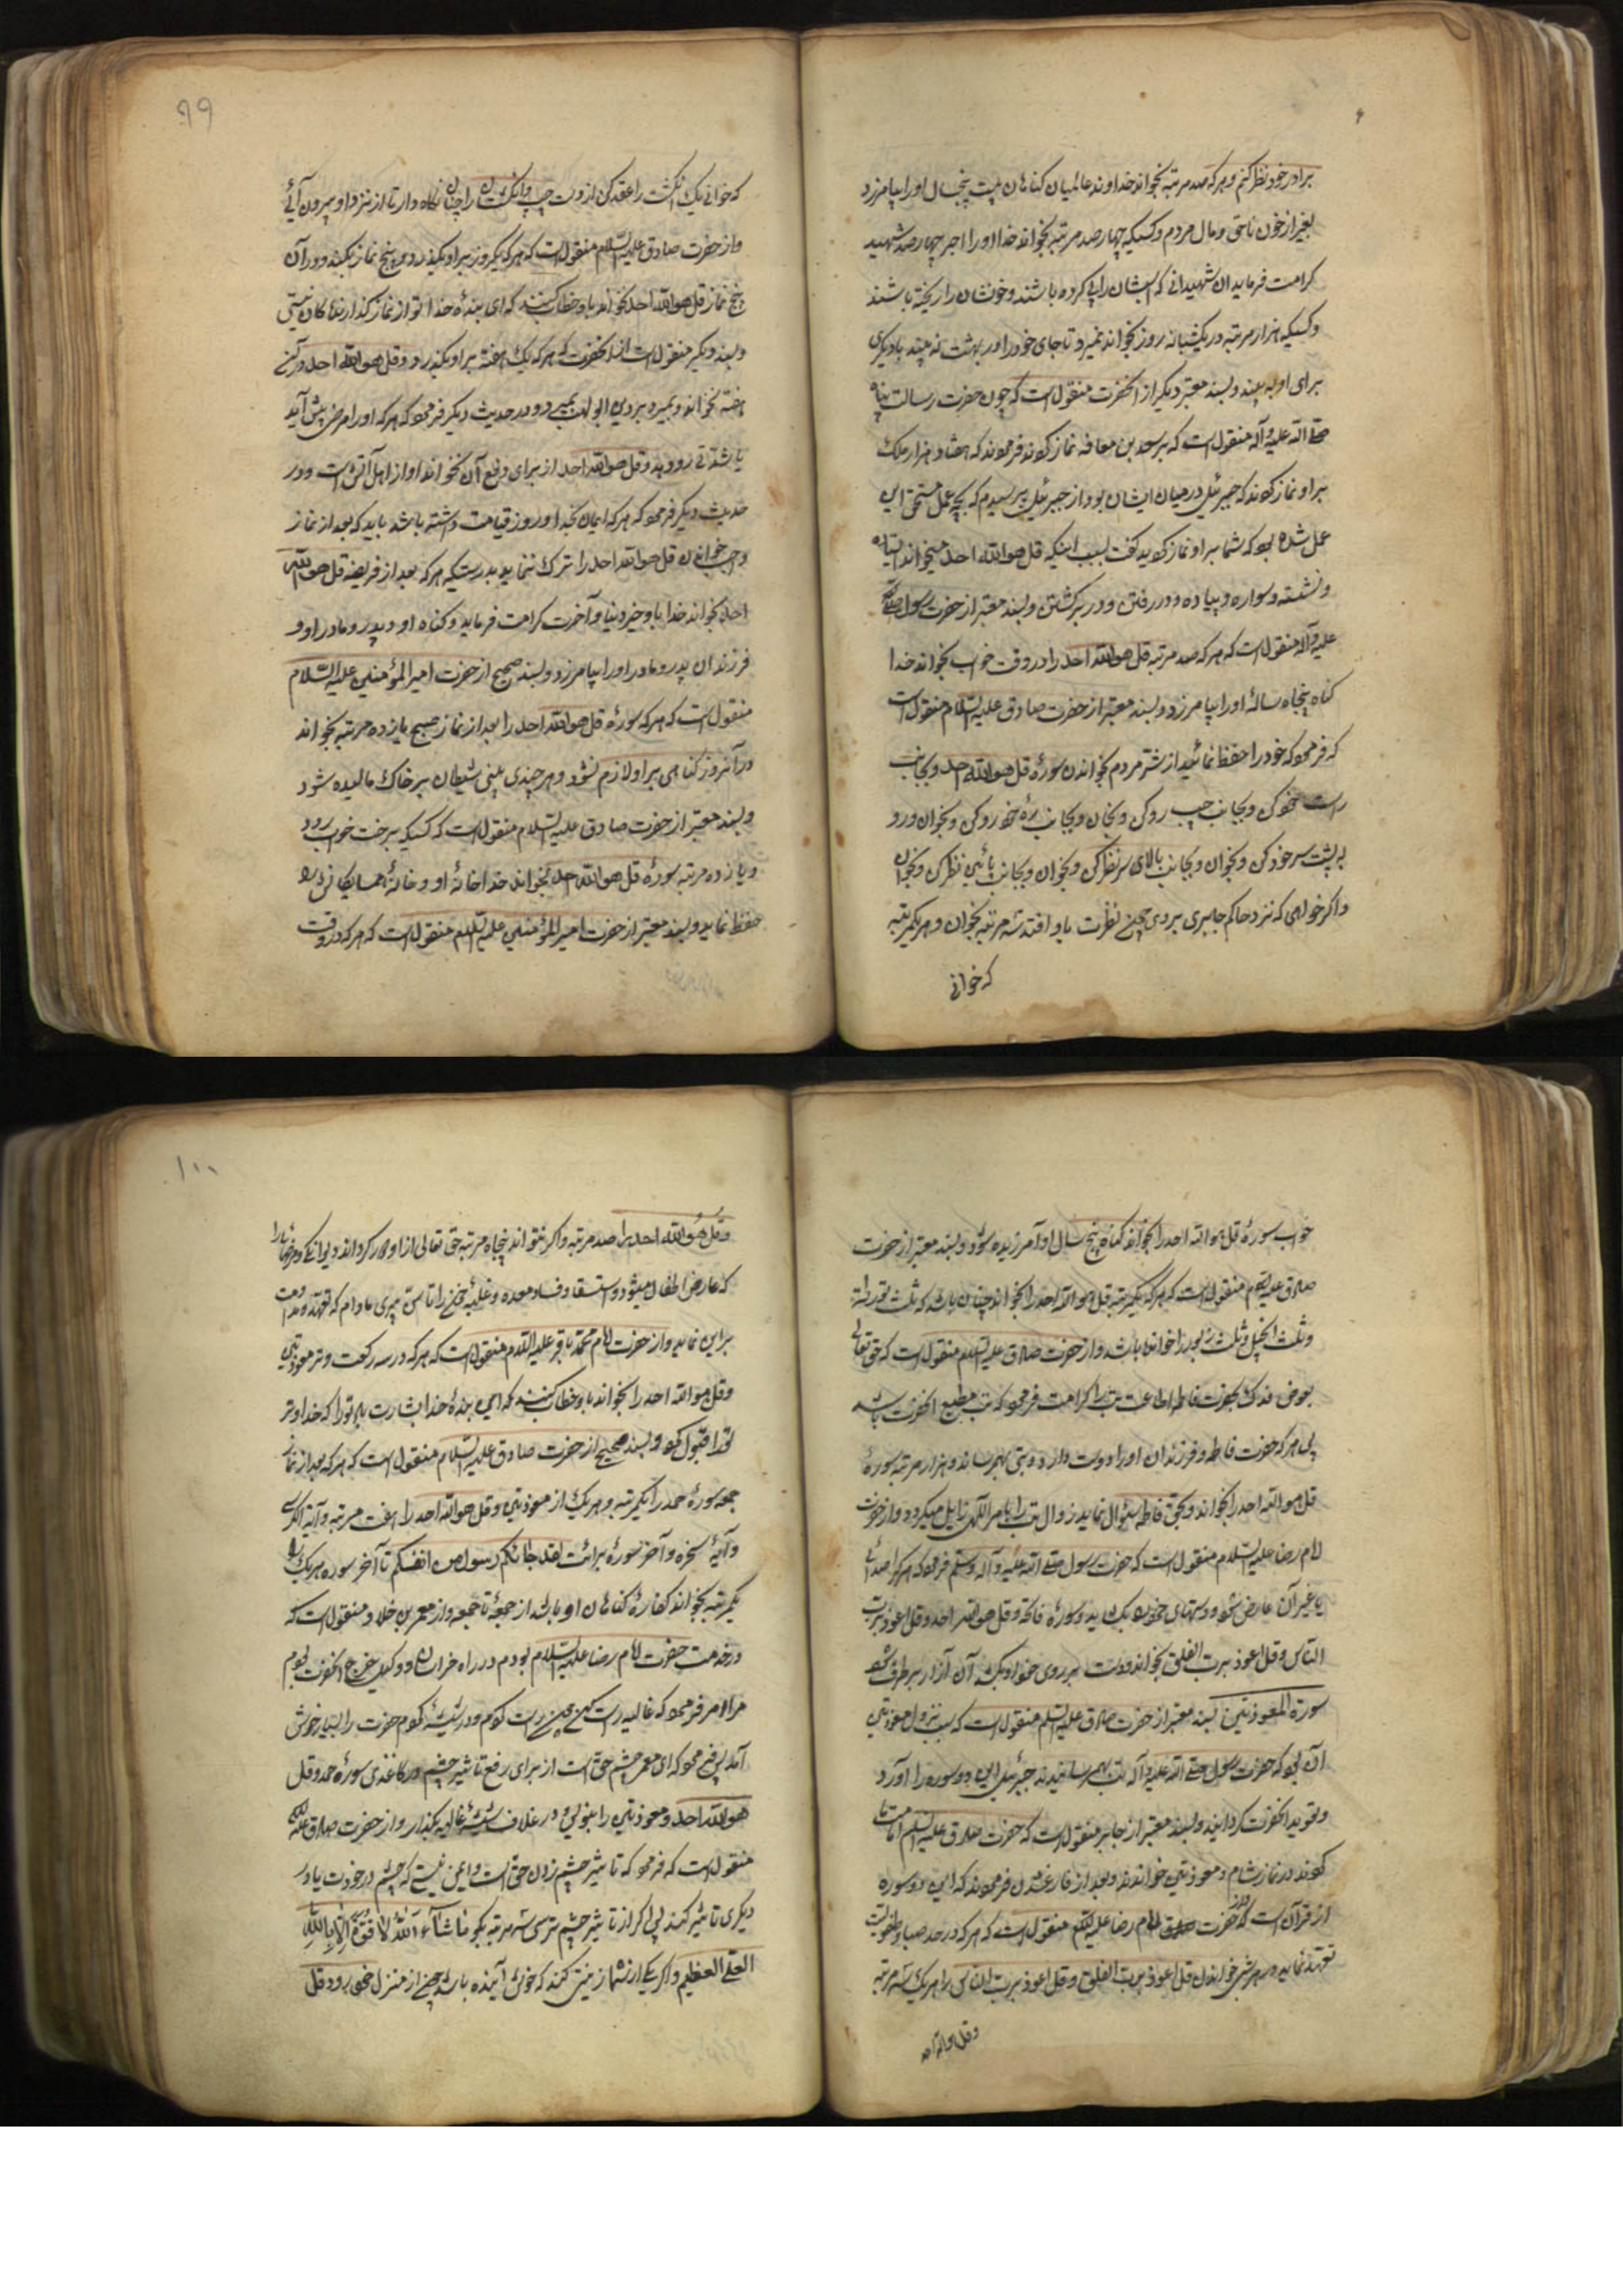 برادر خود نظر کنم و هر که صد مرتبه بخواند خداوند عالمیان کناهان بیست پنجسال اورا بیامرزد
بغیر از خون ناحق و مال مردم و کسیکه چهار صد مرتبه بخواند خدا اورا اجر چهار صد شهید
کرامت فرماید ان شهیدانی که اسبشان را پی کرده باشند و خونشان را ریخته باشند
و کسیکه هزار مرتبه در یکشبانه روز بخواند نمیرد تا جای خود را در بهشت نه بیند یا دیگری
برای او به بیند و بسند معتبر دیکر از انحضرت منقولست که چون حضرت رسالت پناه
صلی الله علیه و آله منقولست که بر سعد بن معاذ نماز کردند فرمودند که هفتاد هزار ملک
بر او نماز کردند که جبرئیل در میان ایشان بود از جبرئیل پرسیدم که بچه عمل مستحق این
عمل شده بود که شما بر او نماز کردید کفت بسبب اینکه قل هو الله احد میخواند ایستاده
و نشسته و سواره و پیاده و در رفتن و در برکشتن و بسند معتبر از حضرت رسول صلی الله
علیه و آله منقولست که هر که صد مرتبه قل هو الله احد را در وقت خواب بخواند خدا
کناه پنجاه سالهٔ اورا بیامرزد و بسند معتبر از حضرت صادق علیه السلام منقولست
که فرمود که خود را حفظ نمائید از شر مردم بخواندن سورهٔ قل هو الله احد و بجانب
راست خود کن و بجانب چپ رو کن و بخوان و بجانب پیش رو کن و بخوان و رو
به پشت سر خود کن و بخوان و بجانب بالای سر نظر کن و بخوان و بجانب پائین نظر کن و بخوان
و اکر خواهی که نزد حاکم جابری بروی چون نظرت باو افتد سه مرتبه بخوان و هر یکمرتبه
که خوانی
۹۹
که خوانی یک انکشت را عقد کن از دست چپ و انکشتان را چنان نکاه دار تا از نزد او بیرون آئی
و از حضرت صادق علیه السلام منقولست که هر که یکروز بر او بکذرد و پنج نماز بکند و در آن
پنج نماز قل هو الله احد نخواند باو خطاب کنند که ای بندهٔ خدا تو از نماز کذارندکان نیستی
و بسند دیکر منقولست از انحضرت که هر که یک هفته بر او بکذرد و قل هو الله احد در آن
هفته نخواند و بمیرد بر دین ابو لهب بمیرد و در حدیث دیکر فرمود که هر که اورا مرضی پیش آید
یا شدتی رو دهد و قل هو الله احد از برای دفع آن نخواند او از اهل آتش است و در
حدیث دیکر فرمود که هر که ایمان بخدا و روز قیامت داشته باشد باید که بعد از نماز
واجب خواندن قل هو الله احد را ترک ننماید بدرستیکه هر که بعد از فریضه قل هو الله
احد بخواند خدا باو خیر دنیا و آخرت کرامت فرماید و کناه او و پدر و مادر او و
فرزندان پدر و مادر اورا بیامرزد و بسند صحیح از حضرت امیر المؤمنین علیه السلام
منقولست که هر که سورهٔ قل هو الله احد را بعد از نماز صبح یازده مرتبه بخواند
در آنروز کناهی بر او لازم نشود و هر چندی بینی شیطان بر خاک مالیده شود
و بسند معتبر از حضرت صادق علیه السلام منقولست که کسیکه برخت خواب رود
و یازده مرتبه سورهٔ قل هو الله احد بخواند خدا خانهٔ او و خانهٔ همسایکانش را
حفظ نماید و بسند معتبر از حضرت امیر المؤمنین علیه السلام منقولست که هر که در وقت
خواب سورهٔ قل هو الله احد را بخواند کناه پنج سال او آمرزیده شود و بسند معتبر از حضرت
صادق علیه السلام منقولست که هر که یکمرتبه قل هو الله احد را بخواند چنان باشد که ثلث تورات
و ثلث انجیل و ثلث زبور را خوانده باشد و از حضرت صادق علیه السلام منقولست که حق تعالی
بعوض فدک بحضرت فاطمه اطاعت تب را کرامت فرمود که تب مطیع انحضرت باشد
پس هر که حضرت فاطمه و فرزندان اورا دوست دارد و تبی بهم رساند و هزار مرتبه سورهٔ
قل هو الله احد را بخواند و بحق فاطمه سئوال نماید زوال تب را بامر الهی زایل میکردد و از حضرت
امام رضا علیه السلام منقولست که حضرت رسول صلی الله علیه و آله و سلم فرمود که هر که را صداعی
یا غیر آن عارض شود و دستهای خود را بکشاید و سورهٔ فاتحه و قل هو الله احد و قل اعوذ برب
الناس و قل اعوذ برب الفلق بخواند و دست بر روی خود بکشد آن آزار بر طرف شود
سورة المعوذتین بسند معتبر از حضرت صادق علیه السلم منقولست که سبب نزول معوذتین
آن بود که حضرت رسول صلی الله علیه و آله تب بهم رسانیدند جبرئیل این دو سوره را آورد
و تعویذ انحضرت کردانید و بسند معتبر از جابر منقولست که حضرت صادق علیه السلم امامت
کردند در نماز شام و معوذتین خواندند و بعد از فارغ شدن فرمودند که این دو سوره
از قرآن است و از حضرت امام رضا علیه السلم منقولست که هر که در حد صبا و طفولیت
تعهد نماید در هر شبی خواندن قل اعوذ برب الفلق و قل اعوذ برب الناس را هر یک سه مرتبه
و قل هو الله احد
۱۰۰
و قل هو الله احد را صد مرتبه و اکر نتواند پنجاه مرتبه حق تعالی از او دور کرداند دیوانکی و مرضها را
که عارض اطفال میشود و استسقا و فساد معده و غلبهٔ خون را تا سن پیری مادام که تعهد و مداومت
بر این نماید و از حضرت امام محمد باقر علیه السلام منقولست که هر که در سه رکعت وتر معوذتین
و قل هو الله احد را بخواند باو خطاب کنند که ای بندهٔ خدا بشارت باد تو را که خدا وتر
تو را قبول کرد و بسند صحیح از حضرت صادق علیه السلام منقولست که هر که بعد از نماز
جمعه سورهٔ حمد را یکمرتبه و هر یک از معوذتین و قل هو الله احد را هفت مرتبه و آیة الکرسی
و آیهٔ سخره و آخر سورهٔ برائت لقد جائکم رسول من انفسکم تا آخر سوره هر یک را
یکمرتبه بخواند کفارهٔ کناهان او باشد از جمعه تا جمعه و از معمر بن خلاد منقولست که
در خدمت حضرت امام رضا علیه السلام بودم در راه خراسان و وکیل خرج انحضرت بودم
مرا امر فرمود که غالیه راست کن چون راست کردم و در شیشه کردم حضرت را بسیار خوش
آمد پس فرمود که ای معمر چشم حق است از برای رفع تاثیر چشم در کاغذی سورهٔ حمد و قل
هو الله احد و معوذتین را بنویس و در غلاف شیشهٔ غالیه بکذار و از حضرت صادق علیه السلم
منقولست که فرمود که تاثیر چشم زدن حق است و ایمن نیستی که چشم در خودت یا در
دیکری تاثیر کند پس اکر از تاثیر چشم ترسی سه مرتبه بکو ما شآء الله لا قوة الا بالله
العلی العظیم و اکر یکی از شما زینتی کند که خوش آینده باشد چون از منزل خود رود قل